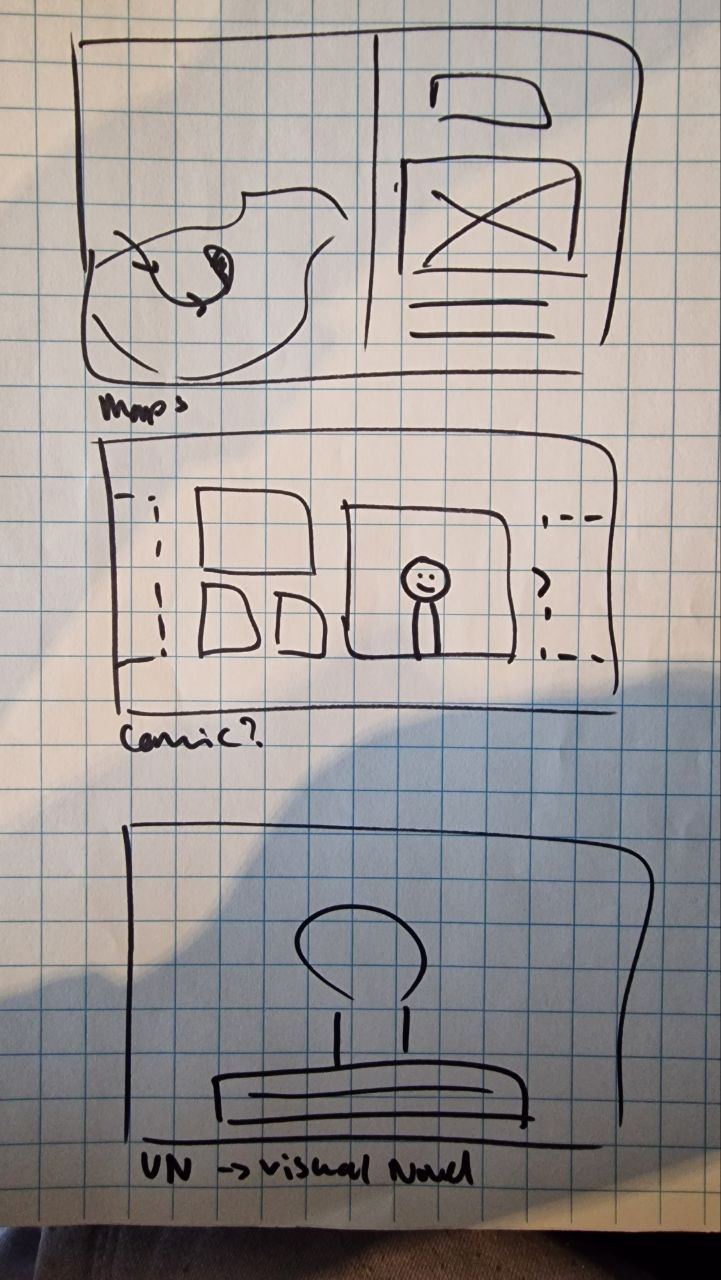 Maps
Comic?
VN -> Visual Novel